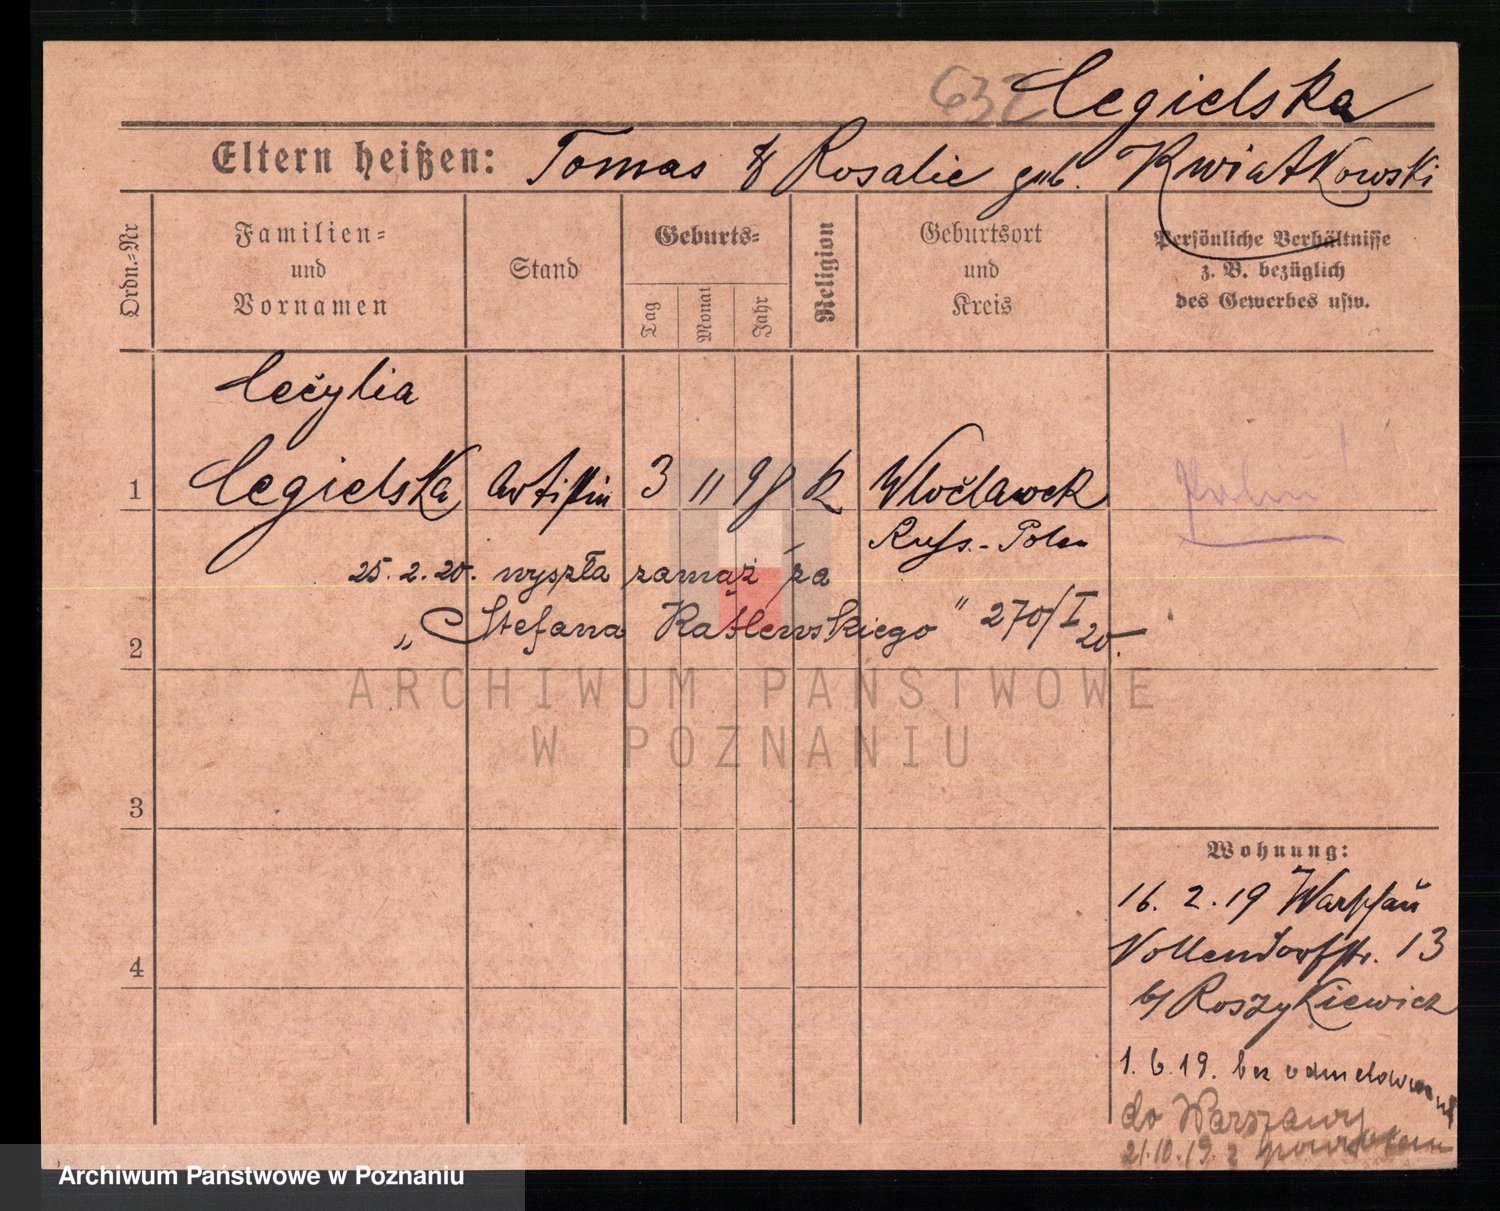 632 Cegielska
Eltern heißen: Tomas & Rosalie geb. Kwiatkowski
Ordn.=Nr
Familien=
und
Vornamen
Stand
Geburts=
Tag
Monat
Jahr
Religion
Geburtsort
und
Kreis
Persönliche Verhältnisse
z. B. bezüglich
des Gewerbes usw.
Cecylia
1 Cegielska Artistin 3 11 98 k Wloclawek
Russ.-Polen
25. 2. 20. wyszła zamąż za
2 „Stefana Katlewskiego" 270/I 20.
ARCHIWUM PAŃSTWOWE
W POZNANIU
3
4
Wohnung:
16. 2. 19 Warschau
13
b/ Roszykiewicz
1. 6. 19. bez odmeldowania
do Warszawy
21.10.19. z powrotem
Archiwum Państwowe w Poznaniu